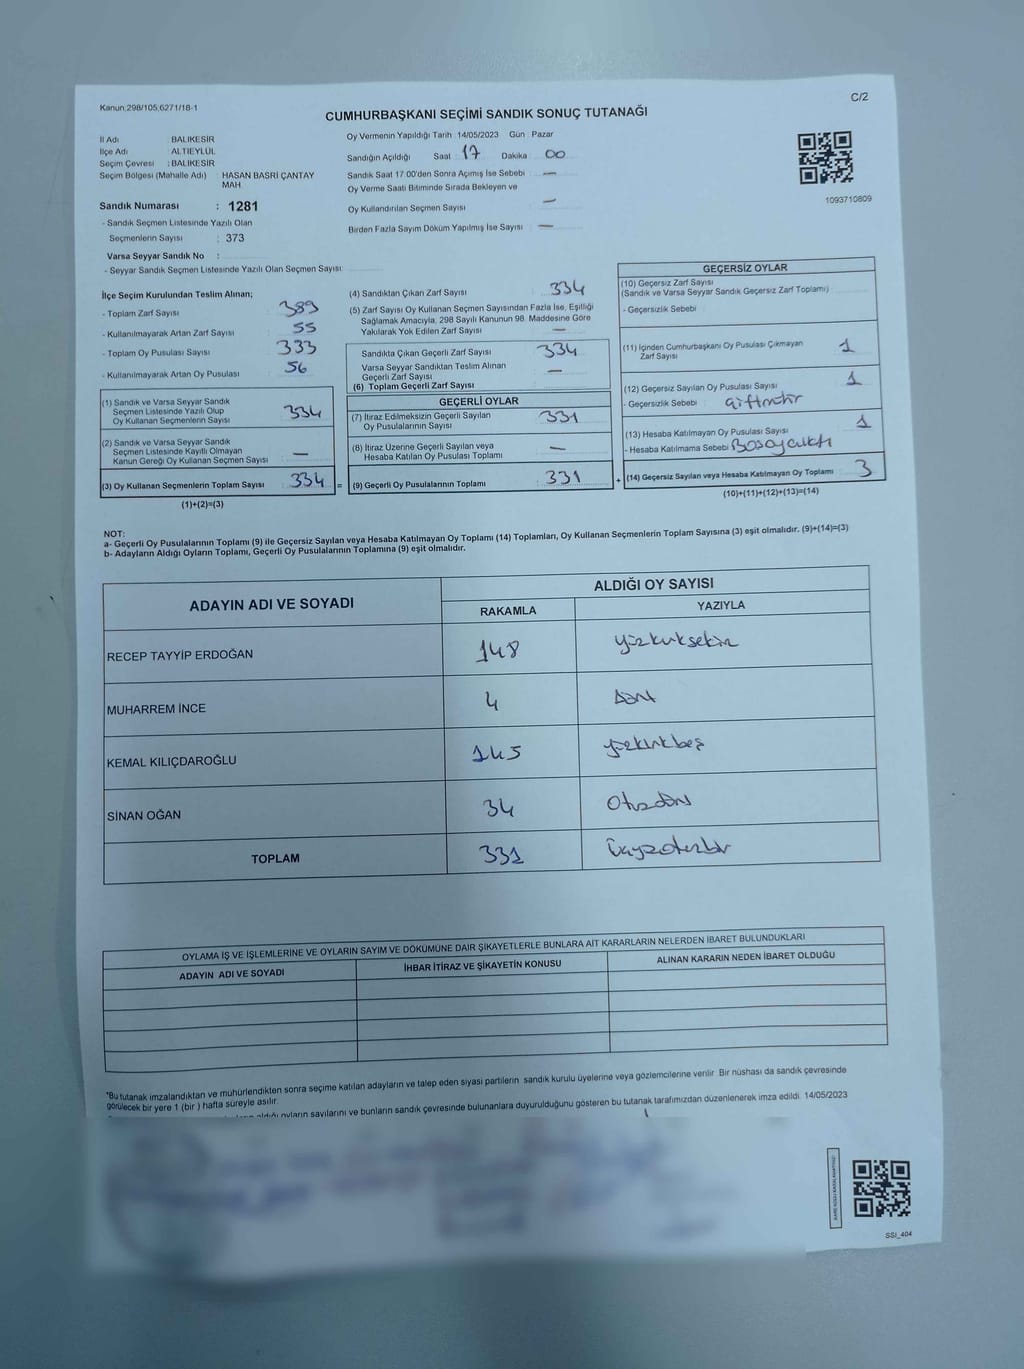 Kanun:298/105,6271/18-1
C/2
CUMHURBAŞKANI SEÇİMİ SANDIK SONUÇ TUTANAĞI
İl Adı : BALIKESİR
İlçe Adı : ALTIEYLÜL
Seçim Çevresi : BALIKESİR
Seçim Bölgesi (Mahalle Adı) : HASAN BASRİ ÇANTAY
MAH
Sandık Numarası : 1281
- Sandık Seçmen Listesinde Yazılı Olan
Seçmenlerin Sayısı : 373
Varsa Seyyar Sandık No :
- Seyyar Sandık Seçmen Listesinde Yazılı Olan Seçmen Sayısı:
Oy Vermenin Yapıldığı Tarih 14/05/2023 Gün : Pazar
Sandığın Açıldığı Saat 17 Dakika 00
Sandık Saat 17:00'den Sonra Açımış İse Sebebi —
Oy Verme Saati Bitiminde Sırada Bekleyen ve
Oy Kullandırılan Seçmen Sayısı —
Birden Fazla Sayım Döküm Yapılmış İse Sayısı —
1093710809
İlçe Seçim Kurulundan Teslim Alınan;
- Toplam Zarf Sayısı : 389
- Kullanılmayarak Artan Zarf Sayısı : 55
- Toplam Oy Pusulası Sayısı : 333
- Kullanılmayarak Artan Oy Pusulası : 56
(1) Sandık ve Varsa Seyyar Sandık
Seçmen Listesinde Yazılı Olup
Oy Kullanan Seçmenlerin Sayısı : 334
(2) Sandık ve Varsa Seyyar Sandık
Seçmen Listesinde Kayıtlı Olmayan
Kanun Gereği Oy Kullanan Seçmen Sayısı : —
(3) Oy Kullanan Seçmenlerin Toplam Sayısı : 334 =
(1)+(2)=(3)
(4) Sandıktan Çıkan Zarf Sayısı : 334
(5) Zarf Sayısı Oy Kullanan Seçmen Sayısından Fazla İse, Eşitliği
Sağlamak Amacıyla, 298 Sayılı Kanunun 98. Maddesine Göre
Yakılarak Yok Edilen Zarf Sayısı : —
Sandıkta Çıkan Geçerli Zarf Sayısı : 334
Varsa Seyyar Sandıktan Teslim Alınan
Geçerli Zarf Sayısı : —
(6) Toplam Geçerli Zarf Sayısı
GEÇERLİ OYLAR
(7) İtiraz Edilmeksizin Geçerli Sayılan
Oy Pusulalarının Sayısı : 331
(8) İtiraz Üzerine Geçerli Sayılan veya
Hesaba Katılan Oy Pusulası Toplamı : —
(9) Geçerli Oy Pusulalarının Toplamı : 331 +
GEÇERSİZ OYLAR
(10) Geçersiz Zarf Sayısı
(Sandık ve Varsa Seyyar Sandık Geçersiz Zarf Toplamı)
- Geçersizlik Sebebi :
(11) İçinden Cumhurbaşkanı Oy Pusulası Çıkmayan
Zarf Sayısı 1
(12) Geçersiz Sayılan Oy Pusulası Sayısı : 1
- Geçersizlik Sebebi :
(13) Hesaba Katılmayan Oy Pusulası Sayısı : 1
- Hesaba Katılmama Sebebi
(14) Geçersiz Sayılan veya Hesaba Katılmayan Oy Toplamı : 3
(10)+(11)+(12)+(13)=(14)
NOT:
a- Geçerli Oy Pusulalarının Toplamı (9) ile Geçersiz Sayılan veya Hesaba Katılmayan Oy Toplamı (14) Toplamları, Oy Kullanan Seçmenlerin Toplam Sayısına (3) eşit olmalıdır. (9)+(14)=(3)
b- Adayların Aldığı Oyların Toplamı, Geçerli Oy Pusulalarının Toplamına (9) eşit olmalıdır.
ADAYIN ADI VE SOYADI
ALDIĞI OY SAYISI
RAKAMLA YAZIYLA
RECEP TAYYİP ERDOĞAN 148 yüzkırksekiz
MUHARREM İNCE 4 Dört
KEMAL KILIÇDAROĞLU 145 yüzkırkbeş
SİNAN OĞAN 34 Otuzdört
TOPLAM 331 Üçyüzotuzbir
OYLAMA İŞ VE İŞLEMLERİNE VE OYLARIN SAYIM VE DÖKÜMÜNE DAİR ŞİKAYETLERLE BUNLARA AİT KARARLARIN NELERDEN İBARET BULUNDUKLARI
ADAYIN ADI VE SOYADI İHBAR İTİRAZ VE ŞİKAYETİN KONUSU ALINAN KARARIN NEDEN İBARET OLDUĞU
*Bu tutanak imzalandıktan ve mühürlendikten sonra seçime katılan adayların ve talep eden siyasi partilerin sandık kurulu üyelerine veya gözlemcilerine verilir. Bir nüshası da sandık çevresinde
görülecek bir yere 1 (bir ) hafta süreyle asılır.
oyların sayılarını ve bunların sandık çevresinde bulunanlara duyurulduğunu gösteren bu tutanak tarafımızdan düzenlenerek imza edildi. 14/05/2023
SSI_404